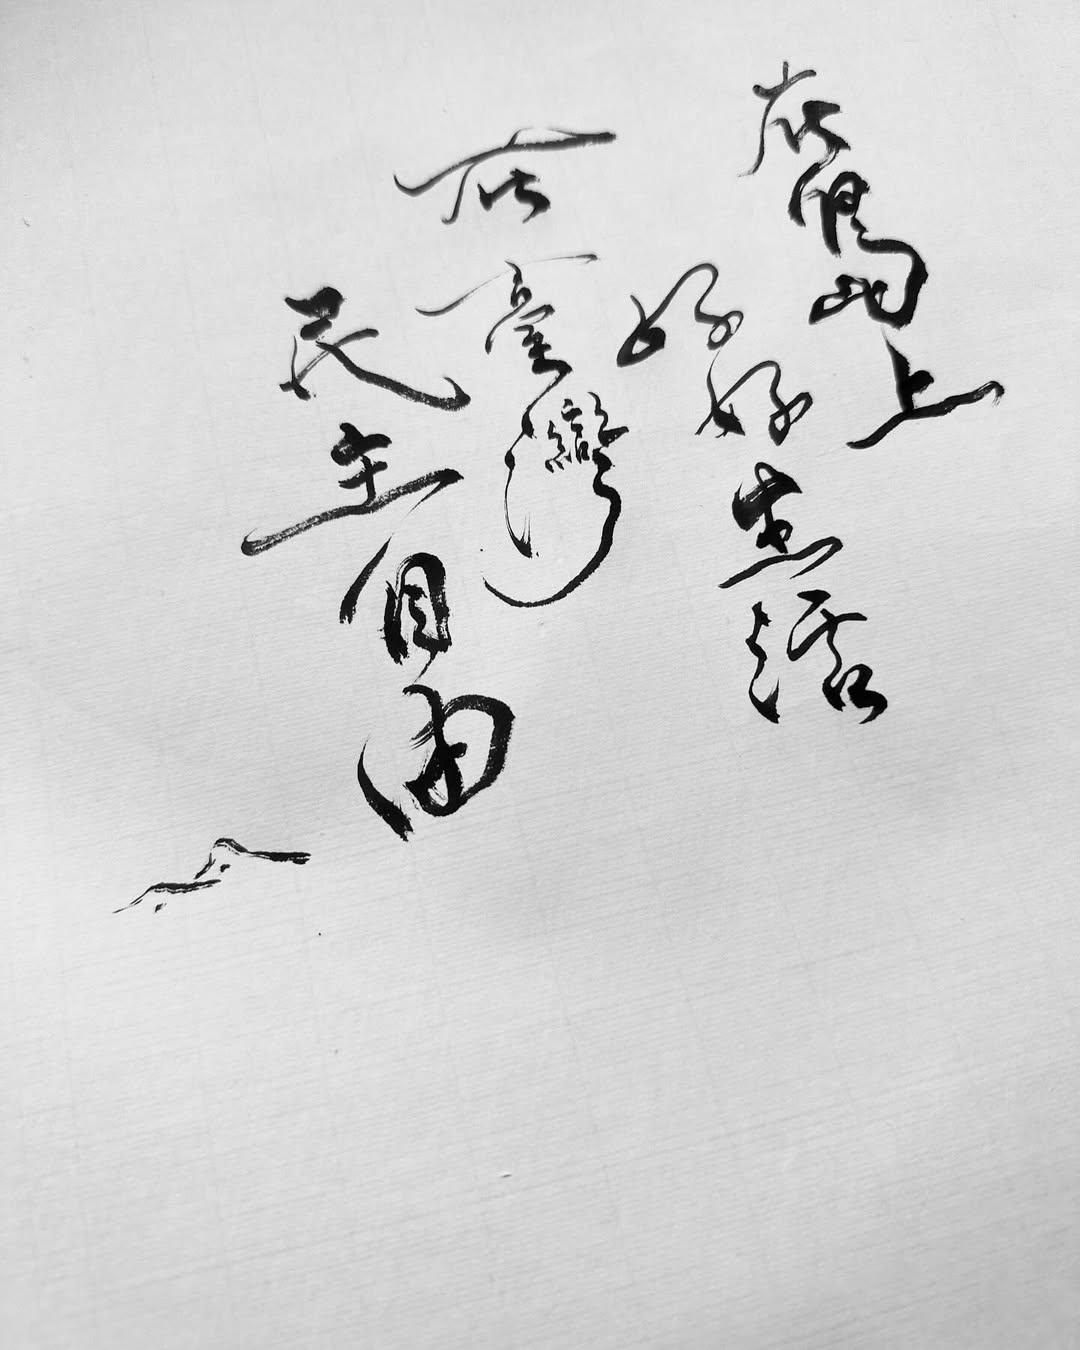 在島上
好好生活
在臺灣
民主自由